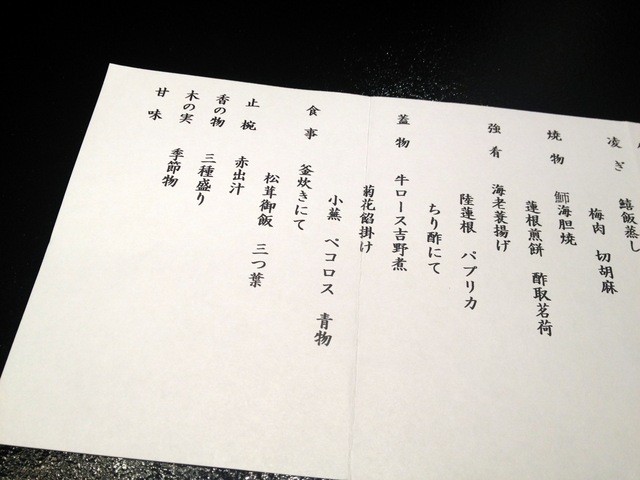 凌ぎ
鱚飯蒸し
梅肉 切胡麻
焼物
鰤海胆焼
蓮根煎餅 酢取茗荷
強肴
海老蓑揚げ
陸蓮根 パプリカ
ちり酢にて
蓋物
牛ロース吉野煮
菊花餡掛け
小蕪 ペコロス 青物
食事
釜炊きにて
松茸御飯 三つ葉
止椀
赤出汁
香の物
三種盛り
木の実
季節物
甘味